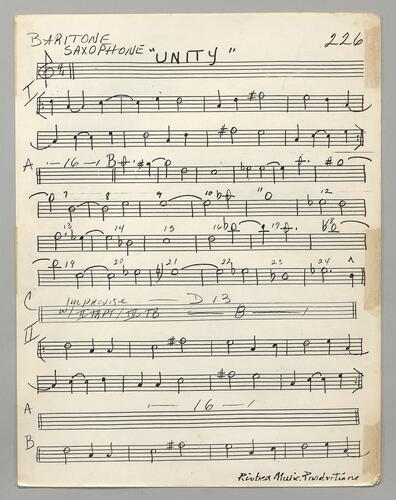 BARITONE
SAXOPHONE "UNITY" 226
I
A - 16 - B
7 8 9 10 11 12
13 14 15 16 17 18
19 20 21 22 23 24
C IMPROVISE D 13
8
II
A - 16 -
B
Rivbea Music